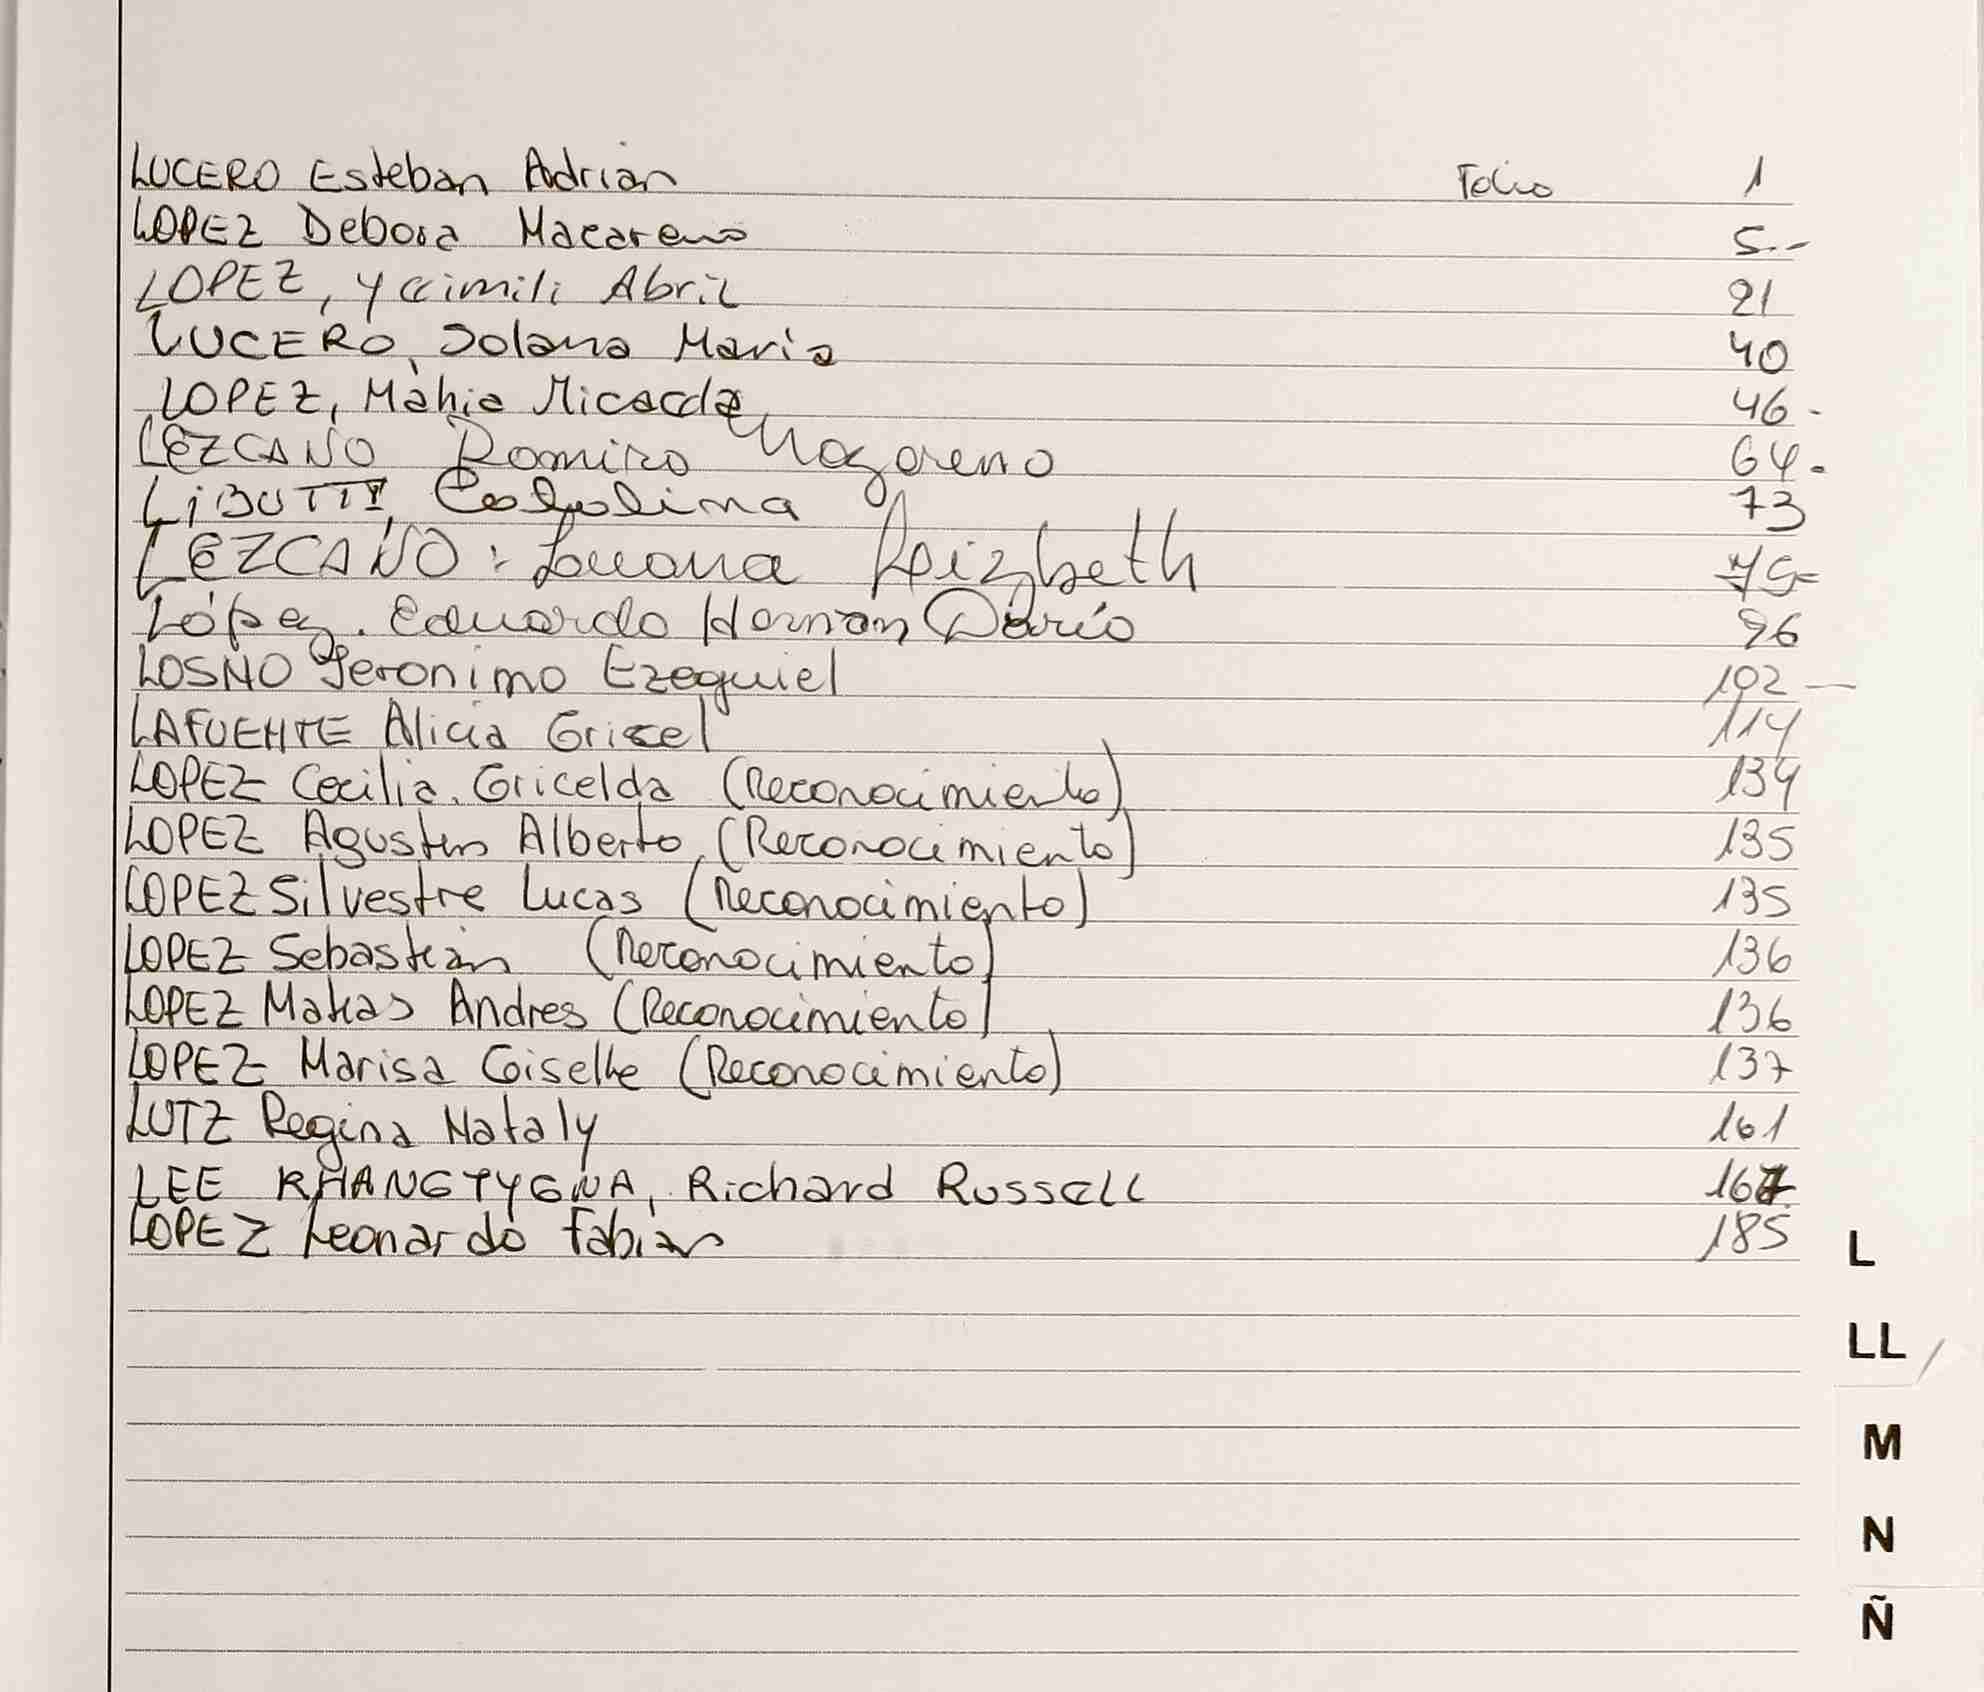 LUCERO Esteban Adrian Folio 1
LOPEZ Debora Macarena 5.-
LOPEZ, Abril 21
LUCERO, Solana Maria 40
LOPEZ, Mahia Micaela 46 -
LEZCANO Romiro Nazareno 64.
LIBUTTI, 73
LEZCANO: Luana Leizbeth
López. Eduardo Hernan Darío 96
LOSNO Jeronimo Ezequiel 102 —
LAFUENTE Alicia Gricel 114
LOPEZ Cecilia. Gricelda (Reconocimiento) 134
LOPEZ Agustin Alberto, (Reconocimiento) 135
LOPEZ Silvestre Lucas (Reconocimiento) 135
LOPEZ Sebastián (Reconocimiento) 136
LOPEZ Matias Andres (Reconocimiento) 136
LOPEZ Marisa Giselle (Reconocimiento) 137
LUTZ Regina Nataly 161
LEE KHANGTYGNA, Richard Russell 167
LOPEZ Leonardo Fabian 185
L
LL
M
N
Ñ